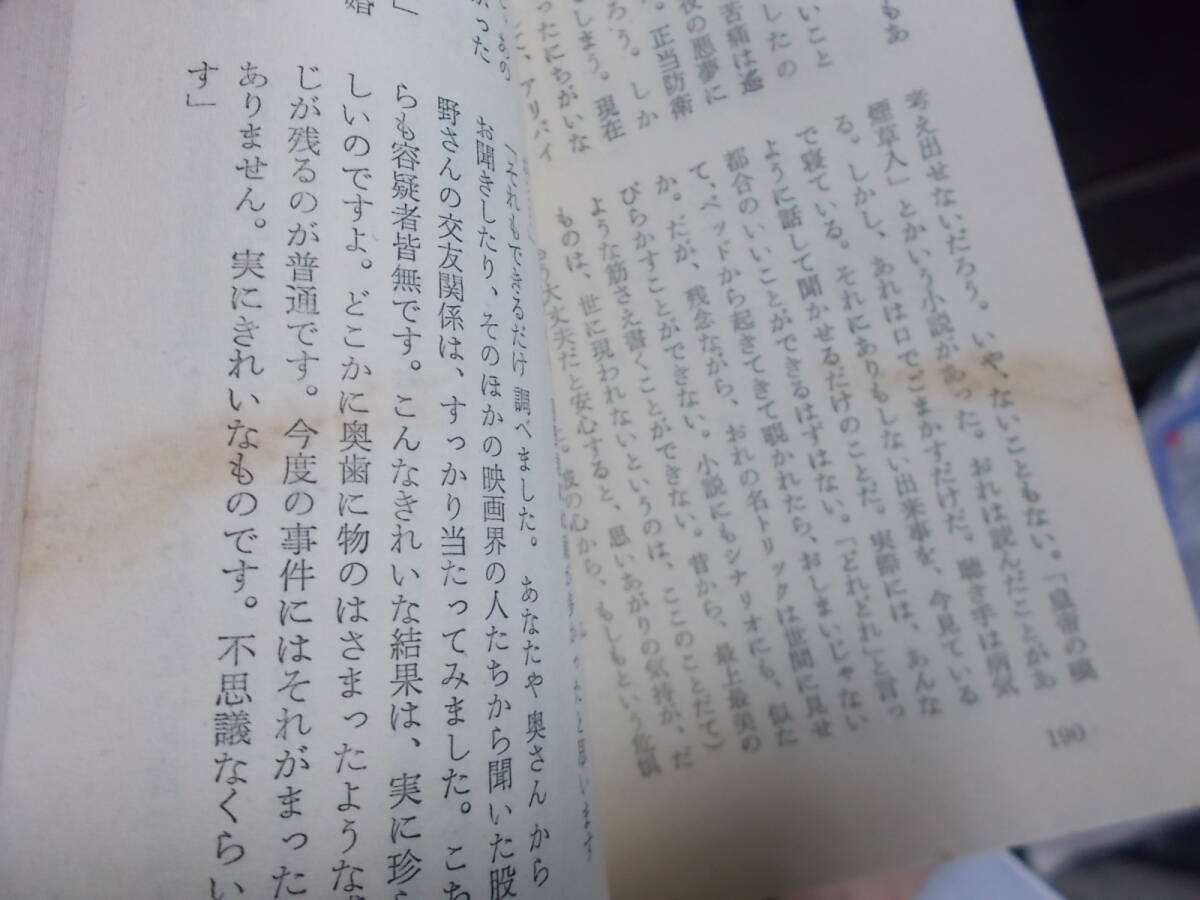 もあ
いこと
したの
苦痛は遥
夜の悪夢に
しまう。現在
ろう。しか
。正当防衛
ったにちがいな
に、アリバイ
考え出せないだろう。いや、ないこともない。「皇帝の嗅
煙草入」とかいう小説があった。おれは読んだことがあ
る。しかし、あれは口でごまかすだけだ。聴き手は病気
で寝ている。それにありもしない出来事を、今見ている
ように話して聞かせるだけのことだ。実際には、あんな
都合のいいことができるはずはない。「どれどれ」と言っ
て、ベッドから起きてきて覗かれたら、おしまいじゃない
か。だが、残念ながら、おれの名トリックは世間に見せ
びらかすことができない。小説にもシナリオにも、似た
ような筋さえ書くことができない。昔から、最上最美の
ものは、世に現われないというのは、ここのことだて）
う大丈夫だと安心すると、思いあがりの気持が、だ
彼の心から、もしもという危惧
190
たと思います
「それもできるだけ調べました。あなたや奥さんから
お聞きしたり、そのほかの映画界の人たちから聞いた股
野さんの交友関係は、すっかり当たってみました。こち
らも容疑者皆無です。こんなきれいな結果は、実に珍ら
しいのですよ。どこかに奥歯に物のはさまったような感
じが残るのが普通です。今度の事件にはそれがまった
ありません。実にきれいなものです。不思議なくらい
す」